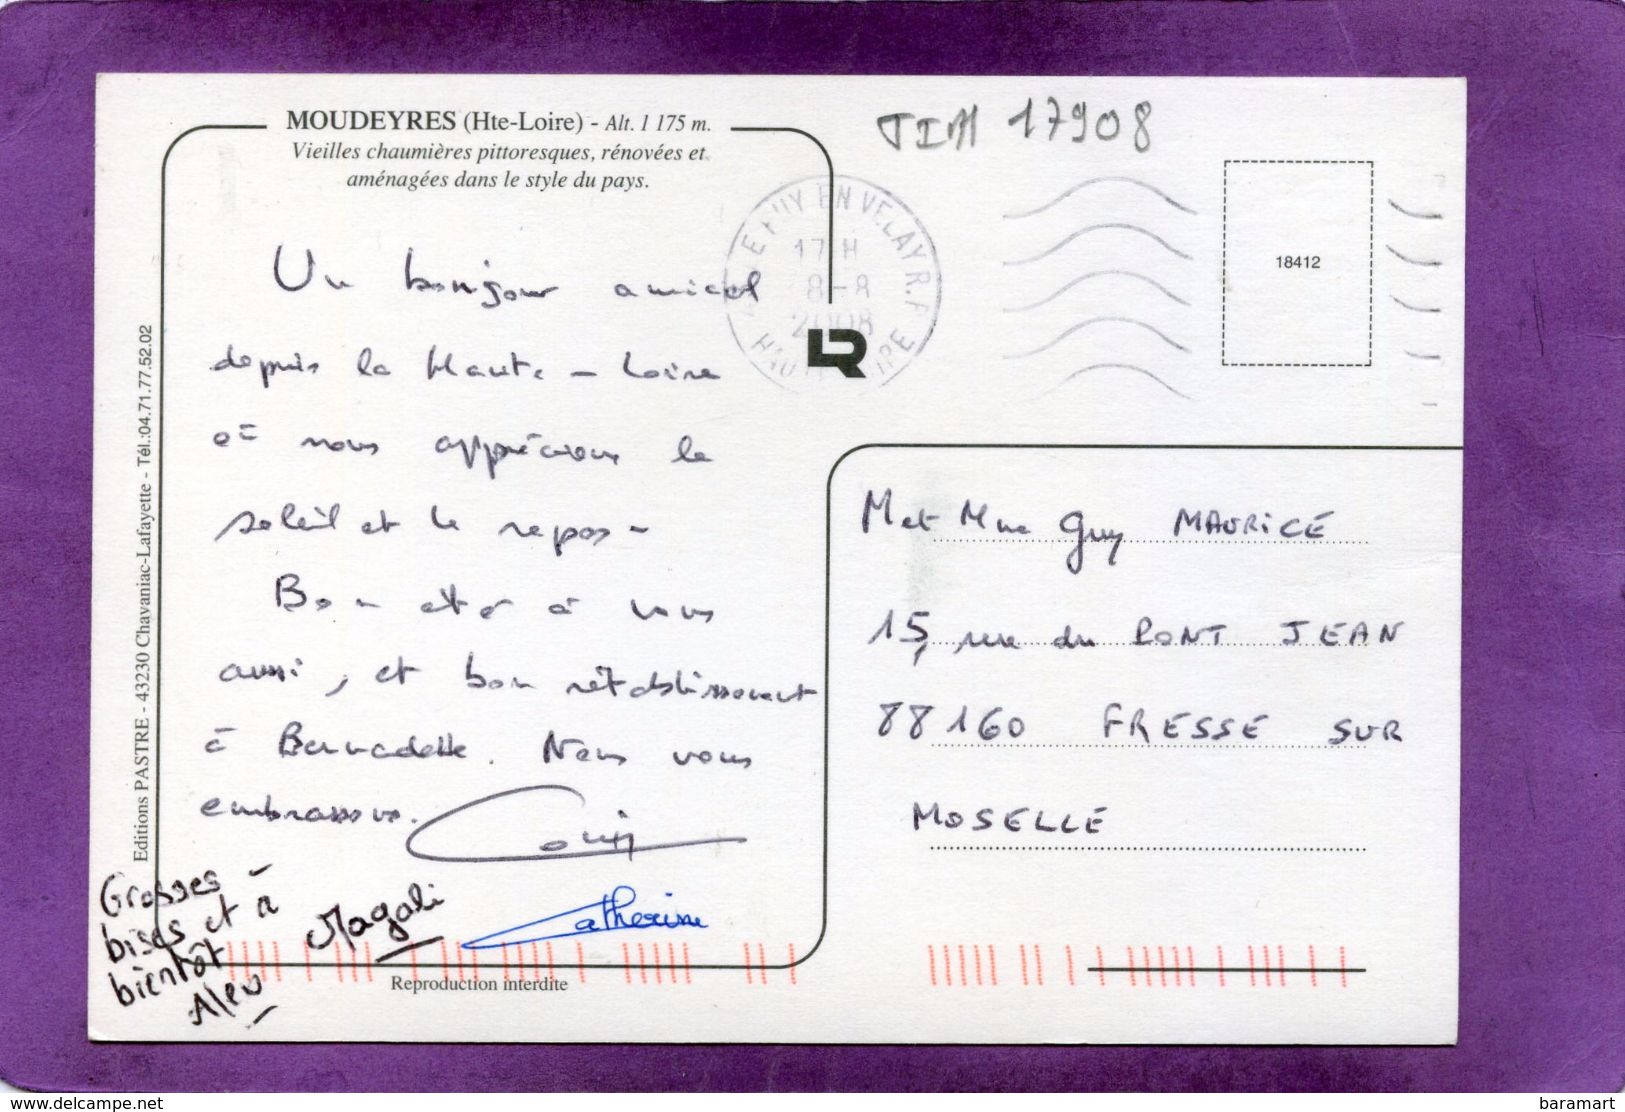 MOUDEYRES (Hte-Loire) - Alt. 1 175 m.
Vieilles chaumières pittoresques, rénovées et
aménagées dans le style du pays.
17908
LE PUY EN VELAY R.P.
17 H
8-8
2008
HAUTE LOIRE
18412
Un bonjour amical
depuis la Haute-Loire
où nous apprécions le
soleil et le repos -
Bon été à vous
aussi, et bon rétablissement
à Bernadette. Nous vous
embrassons.
Magali
Catherine
Grosses
bises et à
bientôt
M et Mme Guy MAURICE
15, rue du PONT JEAN
88160 FRESSE SUR
MOSELLE
Editions PASTRE - 43230 Chavaniac-Lafayette - Tél.:04.71.77.52.02
Reproduction interdite
delcampe.net
baramart